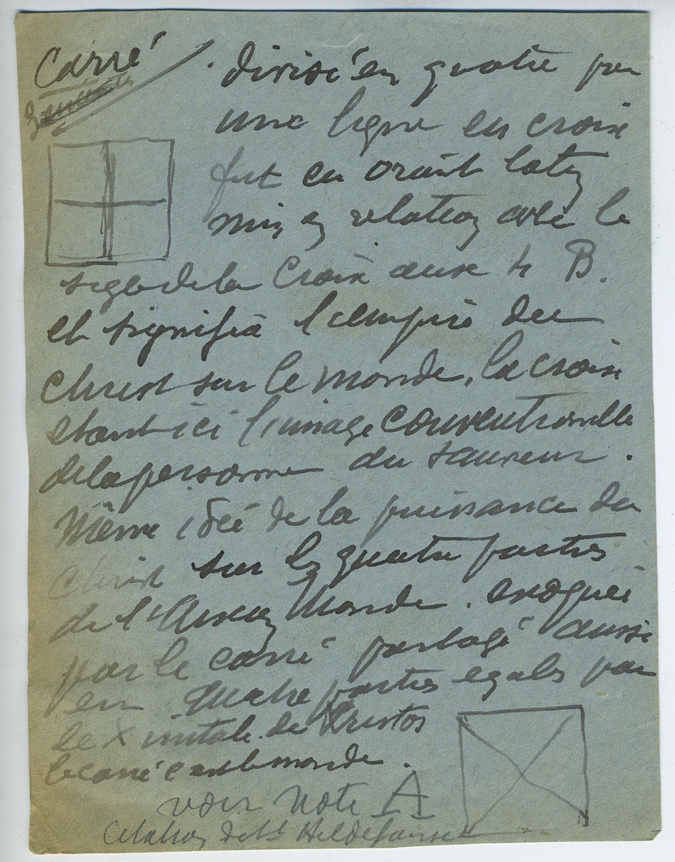 Carré
divisé en quatre par
une ligne en croix
fut en orient latin
mis en relation avec le
sigle de la Croix aux 4 B.
et signifia l'empire du
Christ sur le monde, la croix
etant ici l'image conventionnelle
de la personne du sauveur.
Même idée de la puissance du
Christ sur les quatre parties
de l'Ancien Monde. evoquée
par le carré partagé aussi
en quatre parties egales par
le X initale de Xristos
le carré c'est le monde.
voir note A
citation de St Hildefonse